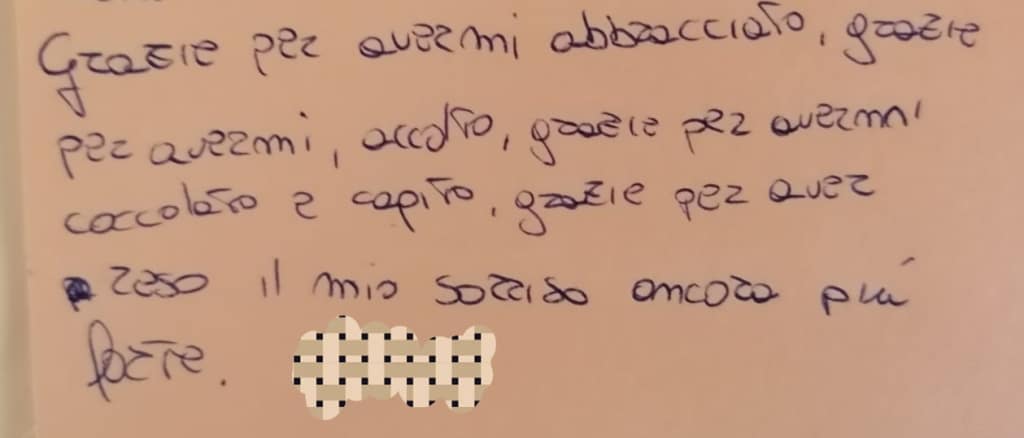 Grazie per avermi abbracciato, grazie
per avermi, accolto, grazie per avermi
coccolato e capito, grazie per aver
reso il mio sorriso ancora più
forte.